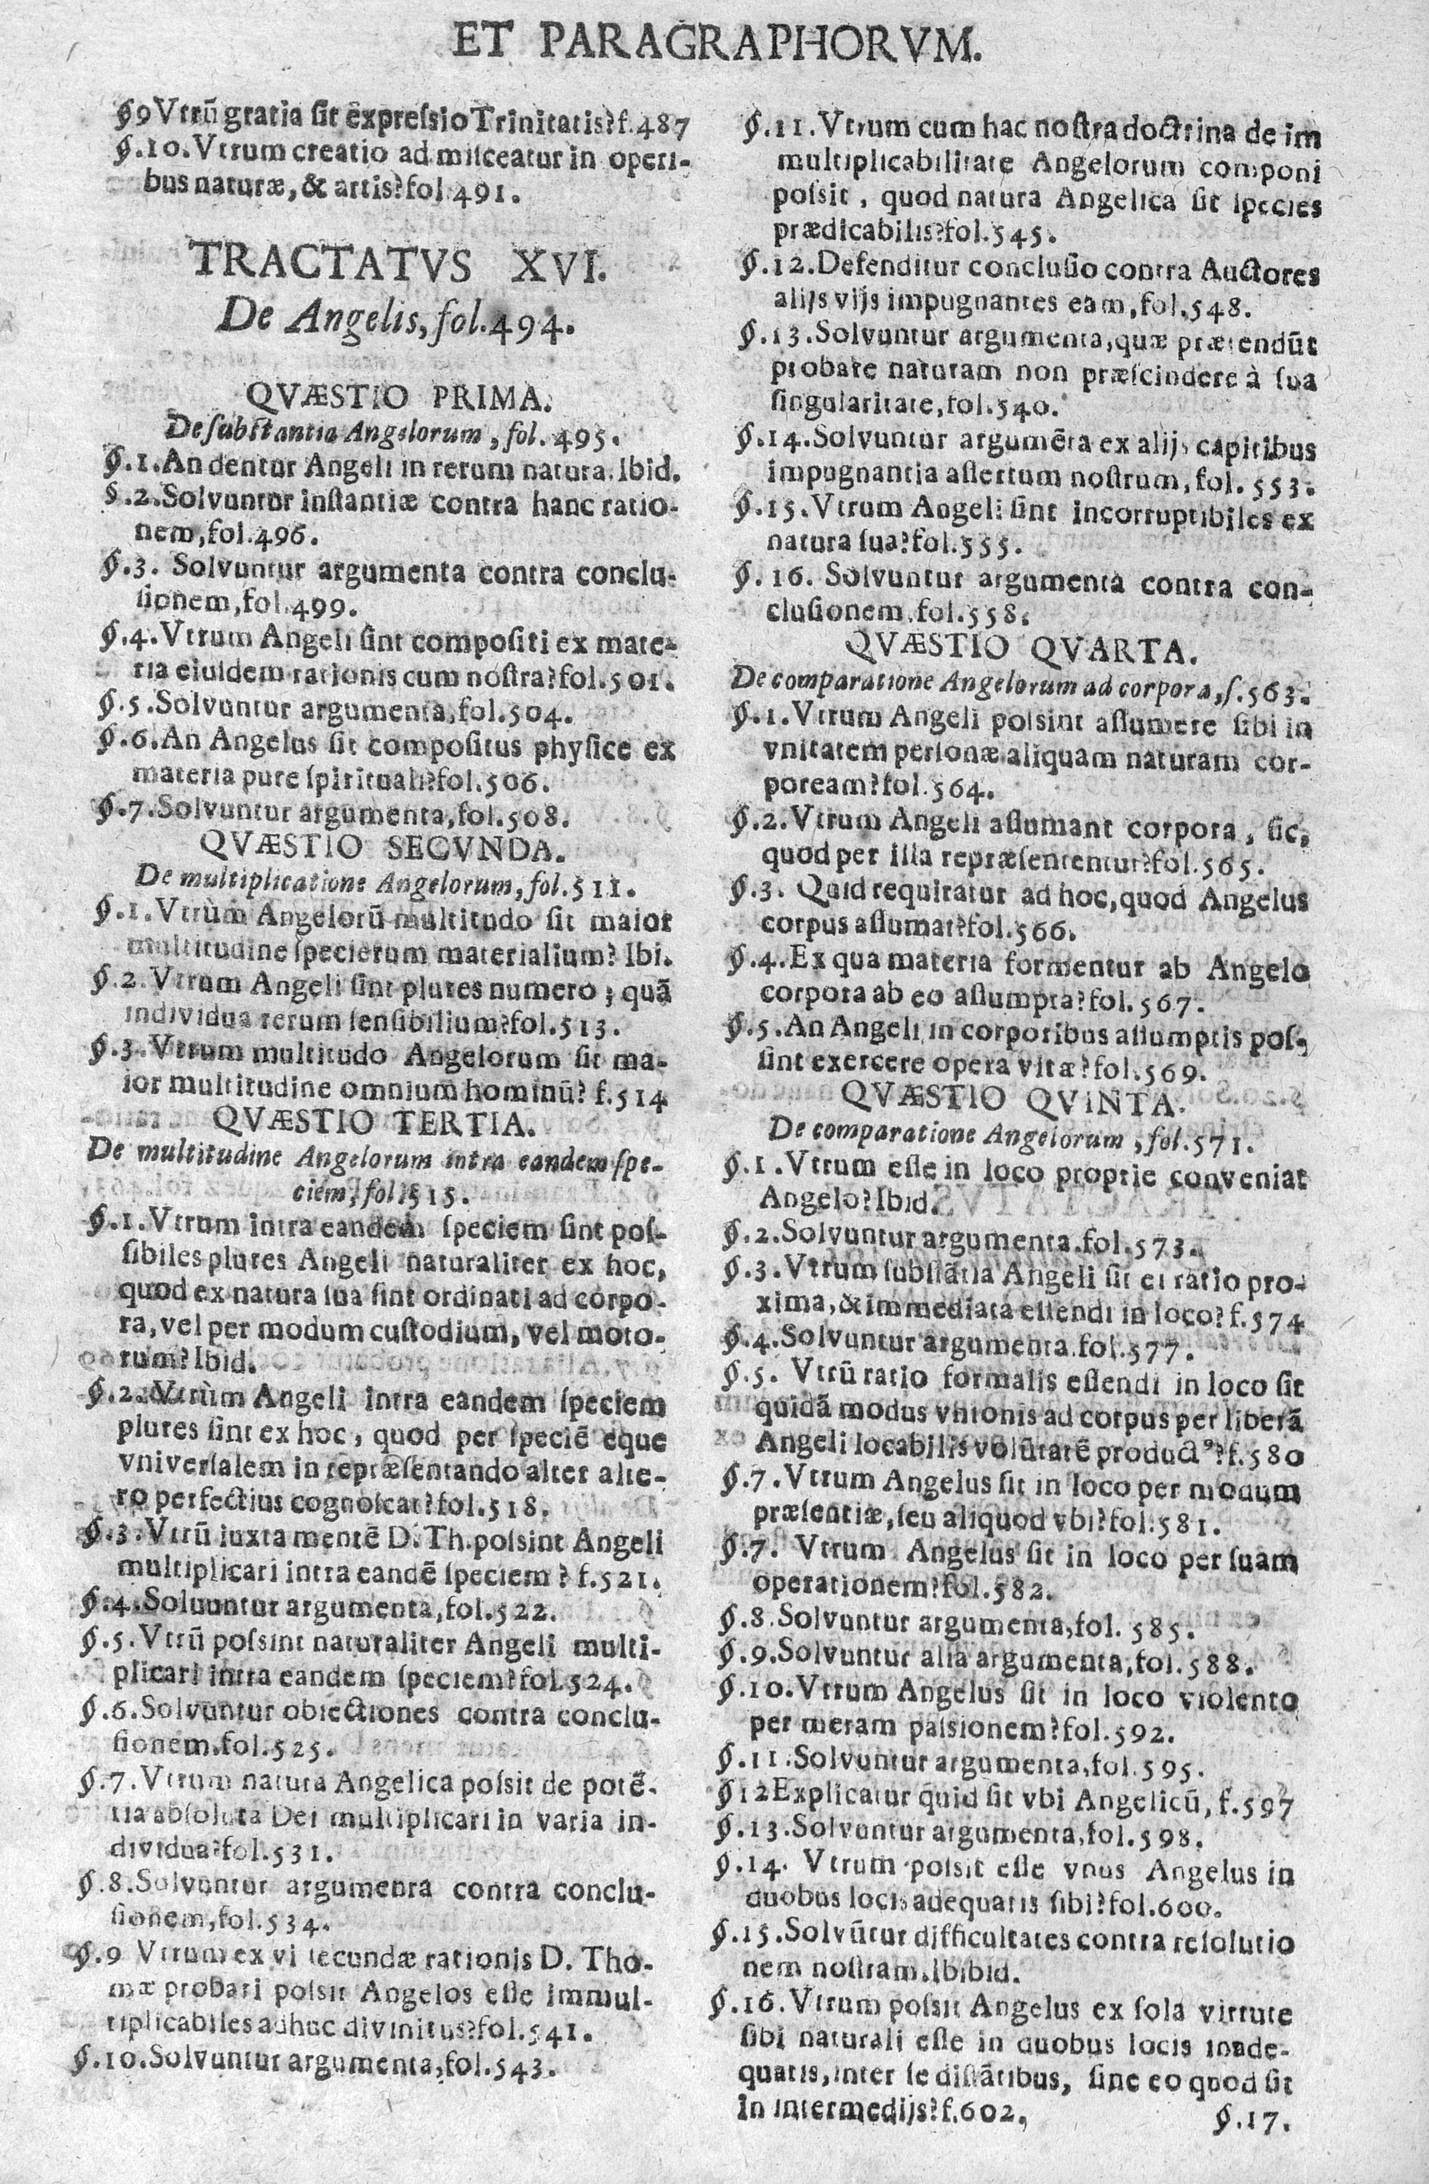 ET PARAGRAPHORVM.
§9Vtrũ gratia sit ẽxpressio Trinitatis?f.487
§.10.Vtrum creatio admisceatur in operi-
bus naturæ, & artis?fol.491.
TRACTATVS XVI.
De Angelis, fol.494.
QVÆSTIO PRIMA.
De substantia Angelorum, fol. 495.
§.1.An dentur Angeli in rerum natura. Ibid.
§.2.Solvuntur instantiæ contra hanc ratio-
nem,fol.496.
§.3. Solvuntur argumenta contra conclu-
sionem,fol.499.
§.4.Vtrum Angeli sint compositi ex mate-
ria eiusdem rationis cum nostra?fol.501.
§.5.Solvuntur argumenta,fol.504.
§.6.An Angelus sit compositus physice ex
materia pure spirituali?fol.506.
§.7.Solvuntur argumenta,fol.508.
QVÆSTIO SECVNDA.
De multiplicatione Angelorum, fol.511.
§.1.Vtrùm Angelorũ multitudo sit maior
multitudine specierum materialium? Ibi.
§.2.Vtrum Angeli sint plures numero, quã
individua rerum sensibilium?fol.513.
§.3.Vtrum multitudo Angelorum sit ma-
ior multitudine omnium hominũ? f.514
QVÆSTIO TERTIA.
De multitudine Angelorum intra eandem spe-
ciem, fol.515.
§.1.Vtrum intra eandem speciem sint pos-
sibiles plures Angeli naturaliter ex hoc,
quod ex natura sua sint ordinati ad corpo-
ra, vel per modum custodium, vel moto-
rum? Ibid.
§.2.Vtrùm Angeli intra eandem speciem
plures sint ex hoc, quod per speciẽ eque
vniversalem in repræsentando alter alte-
ro perfectius cognoscat?fol.518.
§.3.Vtrũ iuxta mentẽ D.Th.possint Angeli
multiplicari intra eandẽ speciem? f.521.
§.4.Soluuntur argumenta,fol.522.
§.5.Vtrũ possint naturaliter Angeli multi-
plicari intra eandem speciem?fol.524.
§.6.Solvuntur obiectiones contra conclu-
sionem.fol.525.
§.7.Vtrum natura Angelica possit de potẽ-
tia absoluta Dei multiplicari in varia in-
dividua?fol.531.
§.8.Solvuntur argumenta contra conclu-
sionem,fol.534.
§.9 Vtrum ex vi secundæ rationis D. Tho-
mæ probari possit Angelos esse immul-
tiplicabiles adhuc divinitus?fol.541.
§.10.Solvuntur argumenta,fol.543.
§.11.Vtrum cum hac nostra doctrina de im
multiplicabilitate Angelorum componi
possit, quod natura Angelica sit species
prædicabilis?fol.545.
§.12.Defenditur conclusio contra Auctores
alijs vijs impugnantes eam,fol.548.
§.13.Solvuntur argumenta,quæ prætendũt
probare naturam non præscindere à sua
singularitate,fol.540.
§.14.Solvuntur argumẽta ex alijs capitibus
impugnantia assertum nostrum, fol. 553.
§.15.Vtrum Angeli sint incorruptibiles ex
natura sua?fol.555.
§.16. Solvuntur argumenta contra con-
clusionem.fol.558.
QVÆSTIO QVARTA.
De comparatione Angelorum ad corpora,f.563.
§.1.Vtrum Angeli possint assumere sibi in
vnitatem personæ aliquam naturam cor-
poream?fol.564.
§.2.Vtrum Angeli assumant corpora, sic,
quod per illa repræsententur?fol.565.
§.3. Quid requiratur ad hoc,quod Angelus
corpus assumat?fol.566.
§.4.Ex qua materia formentur ab Angelo
corpora ab eo assumpta?fol.567.
§.5.An Angeli in corporibus assumptis pos-
sint exercere opera vitæ?fol.569.
QVÆSTIO QVINTA.
De comparatione Angelorum, fol.571.
§.1.Vtrum esse in loco proprie conveniat
Angelo? Ibid.
§.2.Solvuntur argumenta.fol.573.
§.3.Vtrum substãtia Angeli sit ei ratio pro-
xima,& immediata essendi in loco? f.574
§.4.Solvuntur argumenta.fol.577.
§.5. Vtrũ ratio formalis essendi in loco sit
quidã modus vnionis ad corpus per liberã
Angeli locabilis volũtatẽ product⁹?f.580
§.7.Vtrum Angelus sit in loco per modum
præsentiæ, seu aliquod vbi?fol.581.
§.7. Vtrum Angelus sit in loco per suam
operationem?fol.582.
§.8.Solvuntur argumenta,fol. 585.
§.9.Solvuntur alia argumenta,fol.588.
§.10.Vtrum Angelus sit in loco violento
per meram passionem?fol.592.
§.11.Solvuntur argumenta,fol.595.
§12Explicatur quid sit vbi Angelicũ, f.597
§.13.Solvuntur argumenta,fol.598.
§.14. Vtrum possit esse vnus Angelus in
duobus locis adequatis sibi?fol.600.
§.15.Solvũtur difficultates contra resolutio
nem nostram.Ibibid.
§.16.Vtrum possit Angelus ex sola virtute
sibi naturali esse in duobus locis inade-
quatis, inter se distãtibus, sine eo quod sit
in intermedijs?f.602,
§.17.